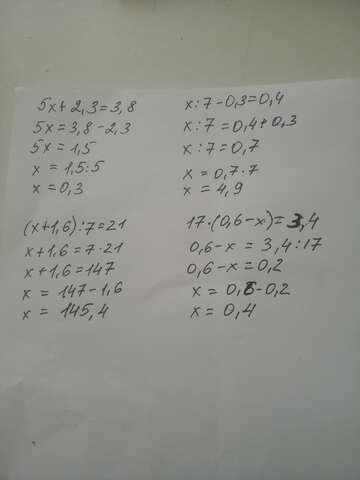 5x+2,3=3,8
5x=3,8-2,3
5x=1,5
x=1,5:5
x=0,3
x:7-0,3=0,4
x:7=0,4+0,3
x:7=0,7
x=0,7·7
x=4,9
(x+1,6):7=21
x+1,6=7·21
x+1,6=147
x=147-1,6
x=145,4
17·(0,6-x)=3,4
0,6-x=3,4:17
0,6-x=0,2
x=0,6-0,2
x=0,4